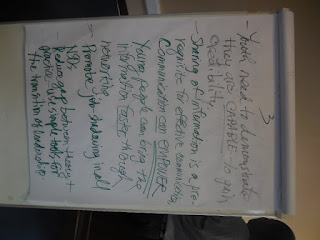 3
- Youth need to demonstrate
they are CAPABLE to gain
credibility
- Sharing of information is a pre-
requisite to effective communication
Communication can EMPOWER
Young people can bring the
information faster through
networking
- Promote job shadowing in all
NSOs
- Reduce gap between theory +
practice, use simple tools for
the transition of leadership